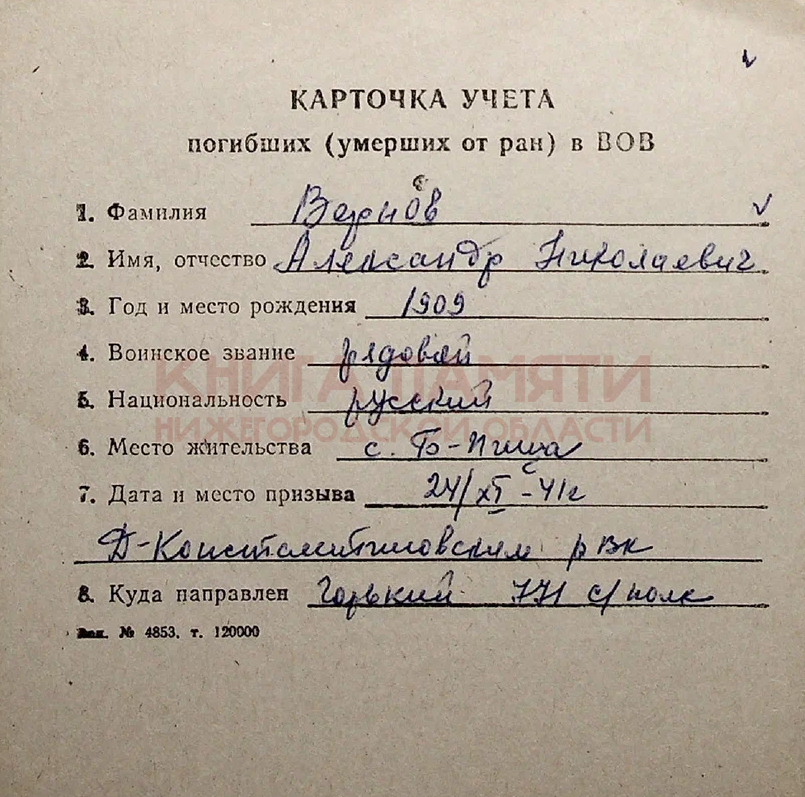 КАРТОЧКА УЧЕТА
погибших (умерших от ран) в ВОВ
1. Фамилия
2. Имя, отчество Александр Николаевич
3. Год и место рождения 1909
4. Воинское звание рядовой
КНИГА ПАМЯТИ
5. Национальность русский
НИЖЕГОРОДСКОЙ ОБЛАСТИ
6. Место жительства с. Б-Пица
7. Дата и место призыва 24/XI-41г
Д-Константиновским рвк
8. Куда направлен Горький 771 с/полк
Зак. № 4853. т. 120000